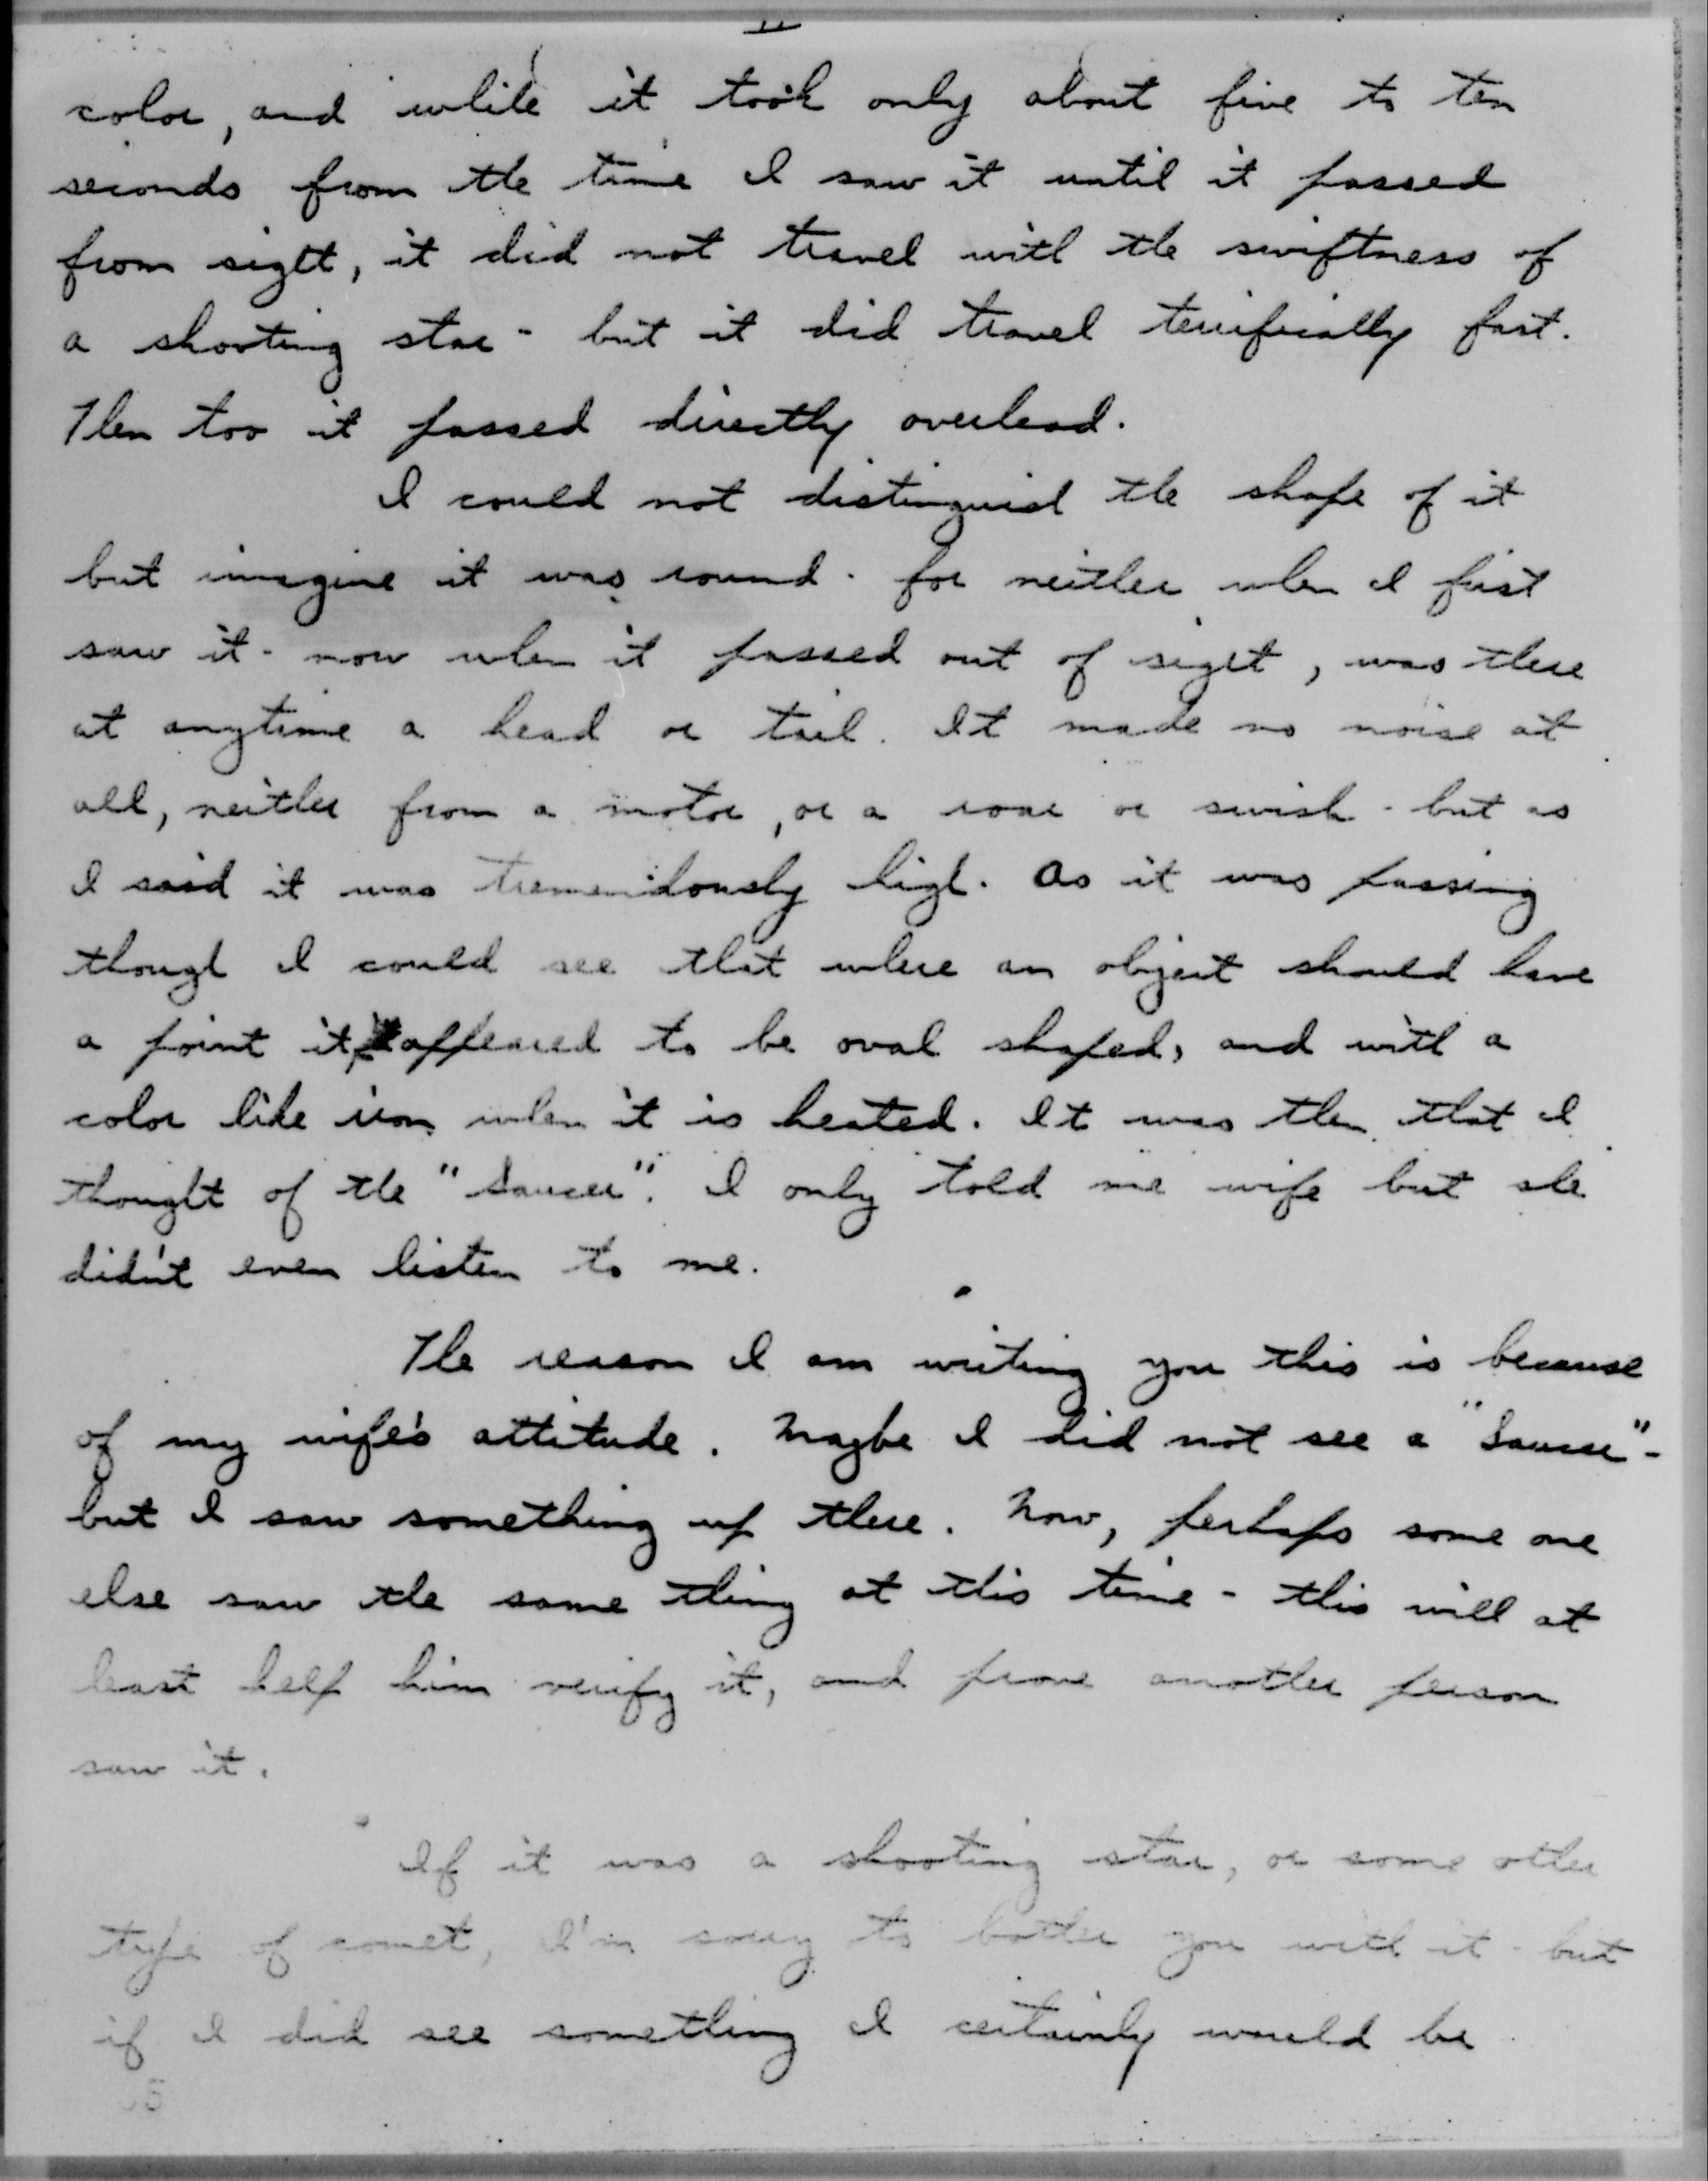 II
color, and while it took only about five to ten
seconds from the time I saw it until it passed
from sight, it did not travel with the swiftness of
a shooting star - but it did travel terrifically fast.
Then too it passed directly overhead.
I could not distinguish the shape of it
but imagine it was round - for neither when I first
saw it - now when it passed out of sight, was there
at anytime a head or tail. It made no noise at
all, neither from a motor, or a roar or swish - but as
I said it was tremendously high. As it was passing
though I could see that where an object should have
a point it appeared to be oval shaped, and with a
color like iron when it is heated. It was then that I
thought of the "Saucer". I only told me wife but she
didn't even listen to me.
The reason I am writing you this is because
of my wife's attitude. Maybe I did not see a "Saucer" -
but I saw something up there. Now, perhaps some one
else saw the same thing at this time - this will at
least help him verify it, and prove another person
saw it.
If it was a shooting star, or some other
type of comet, I'm sorry to bother you with it - but
if I did see something I certainly would be